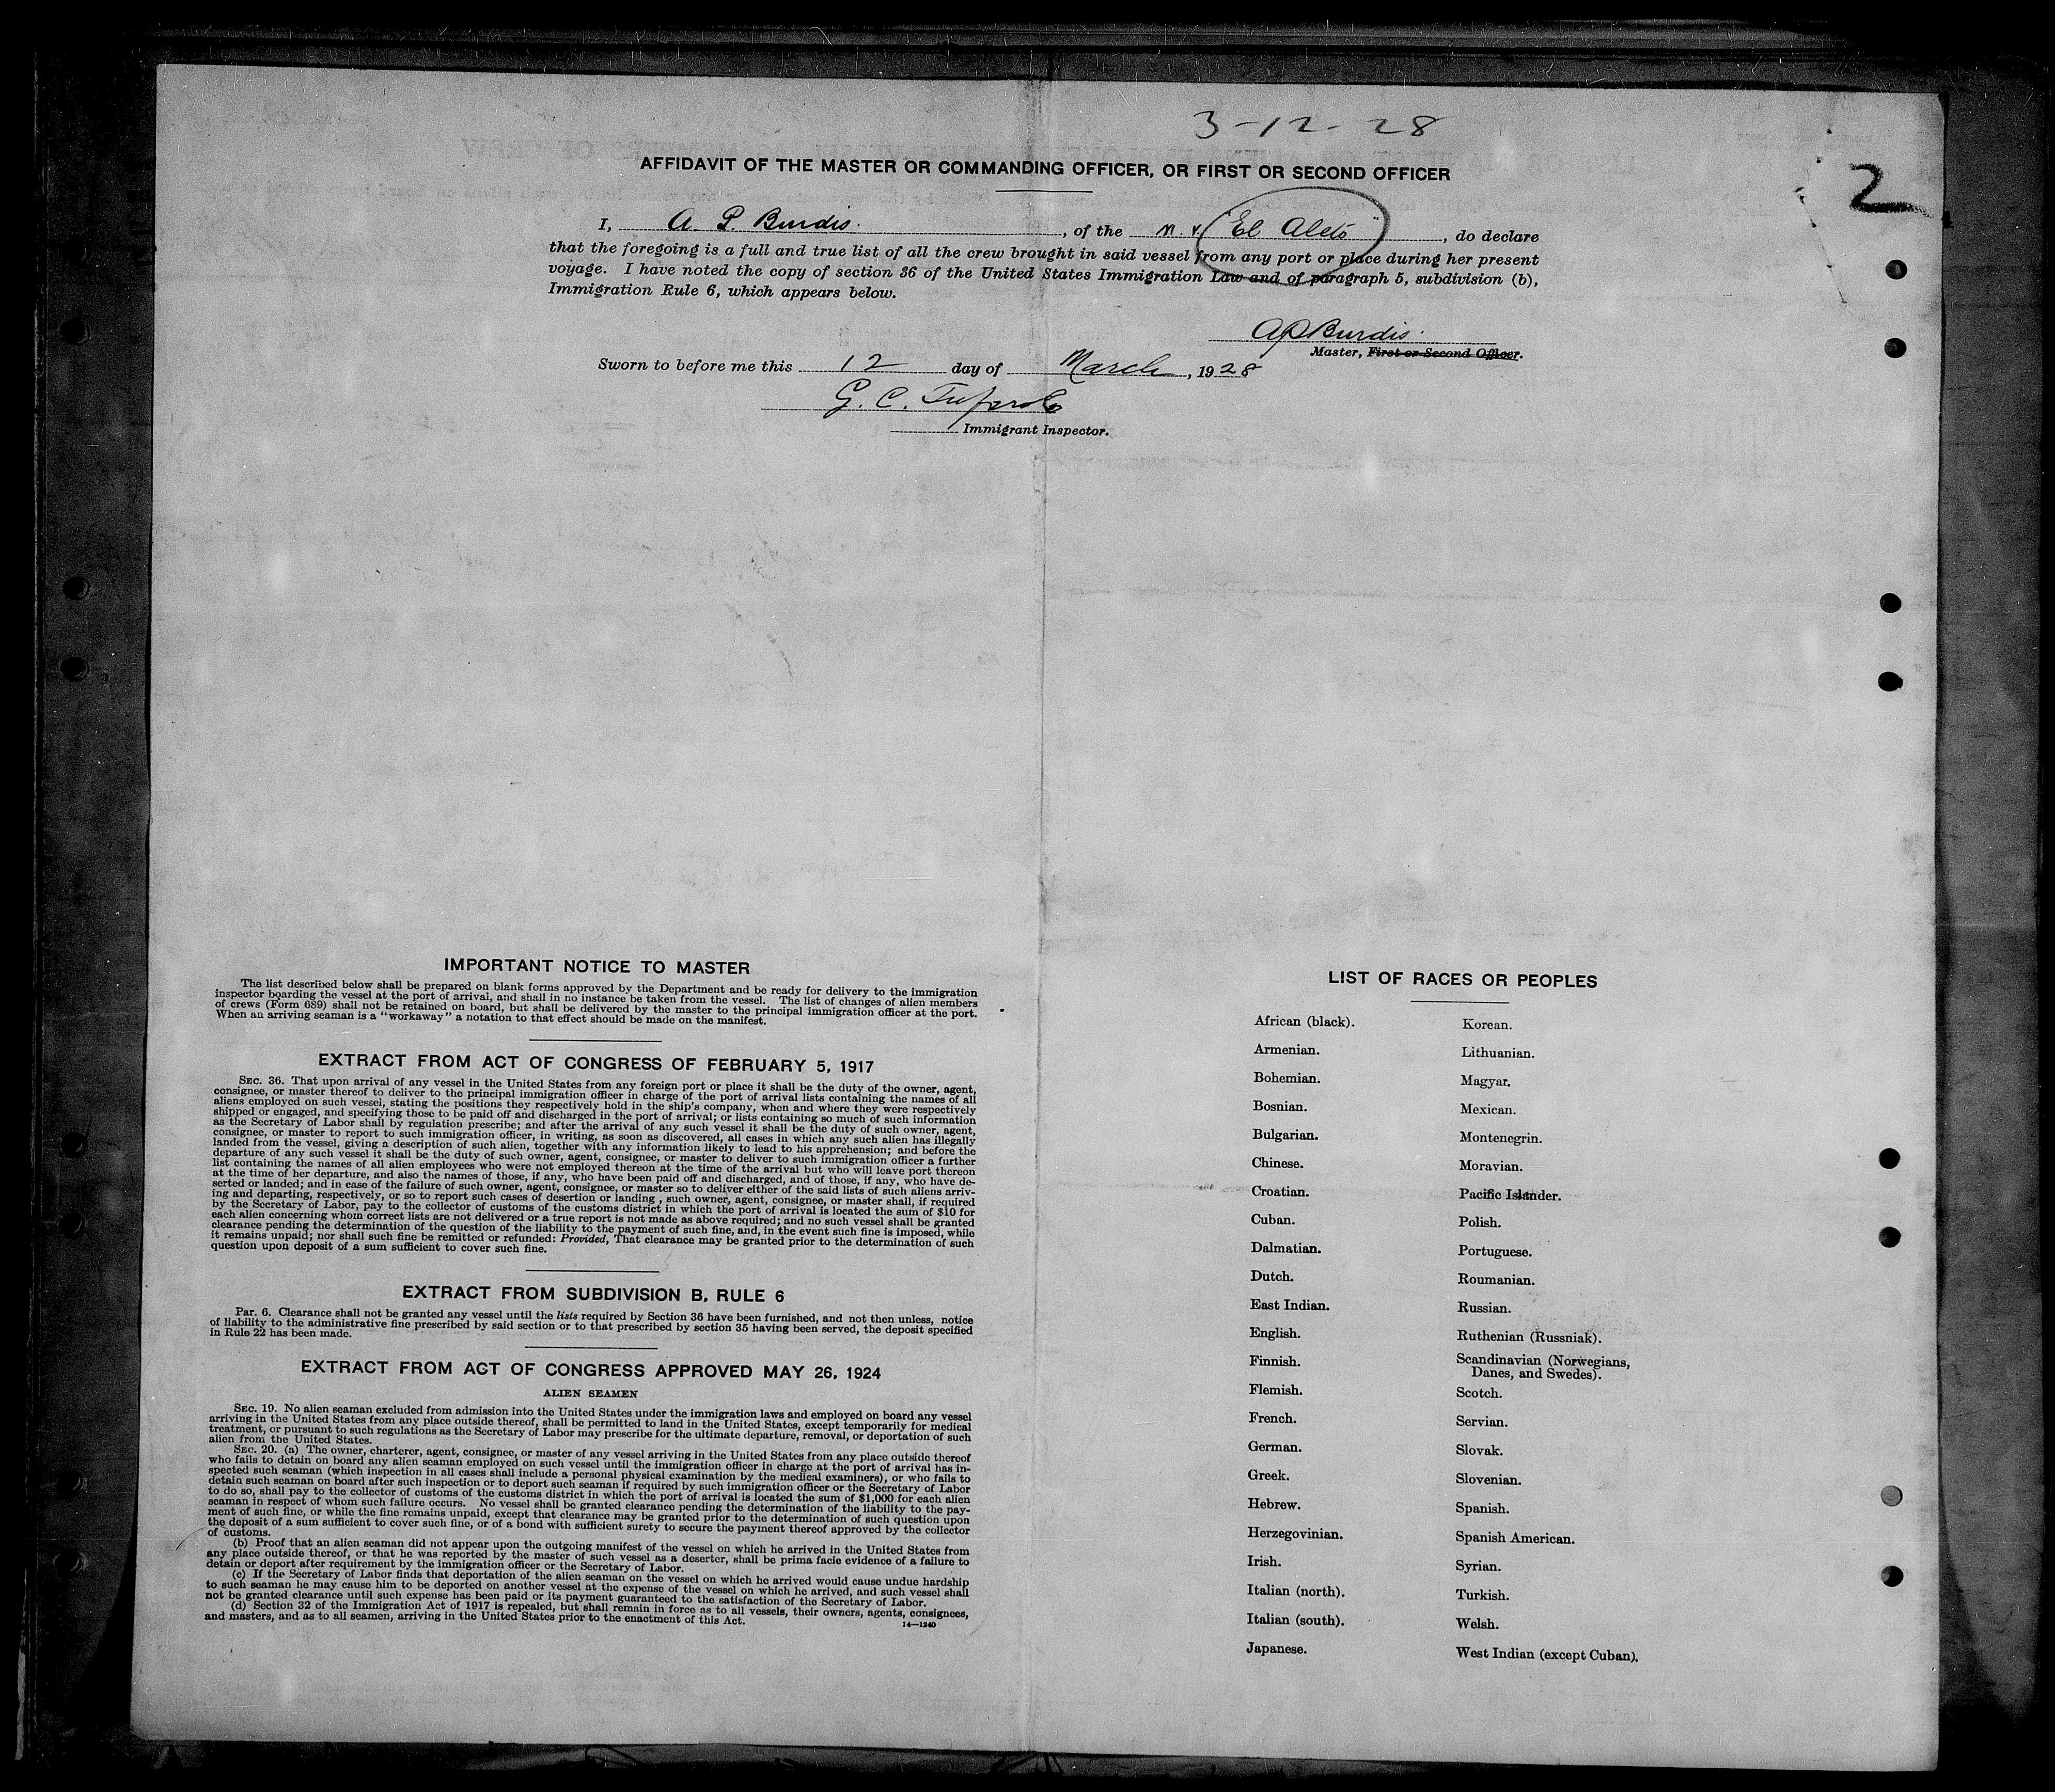 3-12-28
2
AFFIDAVIT OF THE MASTER OR COMMANDING OFFICER, OR FIRST OR SECOND OFFICER
I, A. P. Burdis, of the M.V. "El Aleto", do declare
that the foregoing is a full and true list of all the crew brought in said vessel from any port or place during her present
voyage. I have noted the copy of section 36 of the United States Immigration Law and of paragraph 5, subdivision (b),
Immigration Rule 6, which appears below.
A P Burdis.
Master, First or Second Officer.
Sworn to before me this 12 day of March, 1928
G. C.
Immigrant Inspector.
IMPORTANT NOTICE TO MASTER
The list described below shall be prepared on blank forms approved by the Department and be ready for delivery to the immigration
inspector boarding the vessel at the port of arrival, and shall in no instance be taken from the vessel. The list of changes of alien members
of crews (Form 689) shall not be retained on board, but shall be delivered by the master to the principal immigration officer at the port.
When an arriving seaman is a "workaway" a notation to that effect should be made on the manifest.
EXTRACT FROM ACT OF CONGRESS OF FEBRUARY 5, 1917
SEC. 36. That upon arrival of any vessel in the United States from any foreign port or place it shall be the duty of the owner, agent,
consignee, or master thereof to deliver to the principal immigration officer in charge of the port of arrival lists containing the names of all
aliens employed on such vessel, stating the positions they respectively hold in the ship's company, when and where they were respectively
shipped or engaged, and specifying those to be paid off and discharged in the port of arrival; or lists containing so much of such information
as the Secretary of Labor shall by regulation prescribe; and after the arrival of any such vessel it shall be the duty of such owner, agent,
consignee, or master to report to such immigration officer, in writing, as soon as discovered, all cases in which any such alien has illegally
landed from the vessel, giving a description of such alien, together with any information likely to lead to his apprehension; and before the
departure of any such vessel it shall be the duty of such owner, agent, consignee, or master to deliver to such immigration officer a further
list containing the names of all alien employees who were not employed thereon at the time of the arrival but who will leave port thereon
at the time of her departure, and also the names of those, if any, who have been paid off and discharged, and of those, if any, who have de-
serted or landed; and in case of the failure of such owner, agent, consignee, or master so to deliver either of the said lists of such aliens arriv-
ing and departing, respectively, or so to report such cases of desertion or landing, such owner, agent, consignee, or master shall, if required
by the Secretary of Labor, pay to the collector of customs of the customs district in which the port of arrival is located the sum of $10 for
each alien concerning whom correct lists are not delivered or a true report is not made as above required; and no such vessel shall be granted
clearance pending the determination of the question of the liability to the payment of such fine, and, in the event such fine is imposed, while
it remains unpaid; nor shall such fine be remitted or refunded: Provided, That clearance may be granted prior to the determination of such
question upon deposit of a sum sufficient to cover such fine.
EXTRACT FROM SUBDIVISION B, RULE 6
Par. 6. Clearance shall not be granted any vessel until the lists required by Section 36 have been furnished, and not then unless, notice
of liability to the administrative fine prescribed by said section or to that prescribed by section 35 having been served, the deposit specified
in Rule 22 has been made.
EXTRACT FROM ACT OF CONGRESS APPROVED MAY 26, 1924
ALIEN SEAMEN
SEC. 19. No alien seaman excluded from admission into the United States under the immigration laws and employed on board any vessel
arriving in the United States from any place outside thereof, shall be permitted to land in the United States, except temporarily for medical
treatment, or pursuant to such regulations as the Secretary of Labor may prescribe for the ultimate departure, removal, or deportation of such
alien from the United States.
SEC. 20. (a) The owner, charterer, agent, consignee, or master of any vessel arriving in the United States from any place outside thereof
who fails to detain on board any alien seaman employed on such vessel until the immigration officer in charge at the port of arrival has in-
spected such seaman (which inspection in all cases shall include a personal physical examination by the medical examiners), or who fails to
detain such seaman on board after such inspection or to deport such seaman if required by such immigration officer or the Secretary of Labor
to do so, shall pay to the collector of customs of the customs district in which the port of arrival is located the sum of $1,000 for each alien
seaman in respect of whom such failure occurs. No vessel shall be granted clearance pending the determination of the liability to the pay-
ment of such fine, or while the fine remains unpaid, except that clearance may be granted prior to the determination of such question upon
the deposit of a sum sufficient to cover such fine, or of a bond with sufficient surety to secure the payment thereof approved by the collector
of customs.
(b) Proof that an alien seaman did not appear upon the outgoing manifest of the vessel on which he arrived in the United States from
any place outside thereof, or that he was reported by the master of such vessel as a deserter, shall be prima facie evidence of a failure to
detain or deport after requirement by the immigration officer or the Secretary of Labor.
(c) If the Secretary of Labor finds that deportation of the alien seaman on the vessel on which he arrived would cause undue hardship
to such seaman he may cause him to be deported on another vessel at the expense of the vessel on which he arrived, and such vessel shall
not be granted clearance until such expense has been paid or its payment guaranteed to the satisfaction of the Secretary of Labor.
(d) Section 32 of the Immigration Act of 1917 is repealed, but shall remain in force as to all vessels, their owners, agents, consignees,
and masters, and as to all seamen, arriving in the United States prior to the enactment of this Act.
14—1240
LIST OF RACES OR PEOPLES
African (black).
Armenian.
Bohemian.
Bosnian.
Bulgarian.
Chinese.
Croatian.
Cuban.
Dalmatian.
Dutch.
East Indian.
English.
Finnish.
Flemish.
French.
German.
Greek.
Hebrew.
Herzegovinian.
Irish.
Italian (north).
Italian (south).
Japanese.
Korean.
Lithuanian.
Magyar.
Mexican.
Montenegrin.
Moravian.
Pacific Islander.
Polish.
Portuguese.
Roumanian.
Russian.
Ruthenian (Russniak).
Scandinavian (Norwegians,
Danes, and Swedes).
Scotch.
Servian.
Slovak.
Slovenian.
Spanish.
Spanish American.
Syrian.
Turkish.
Welsh.
West Indian (except Cuban).